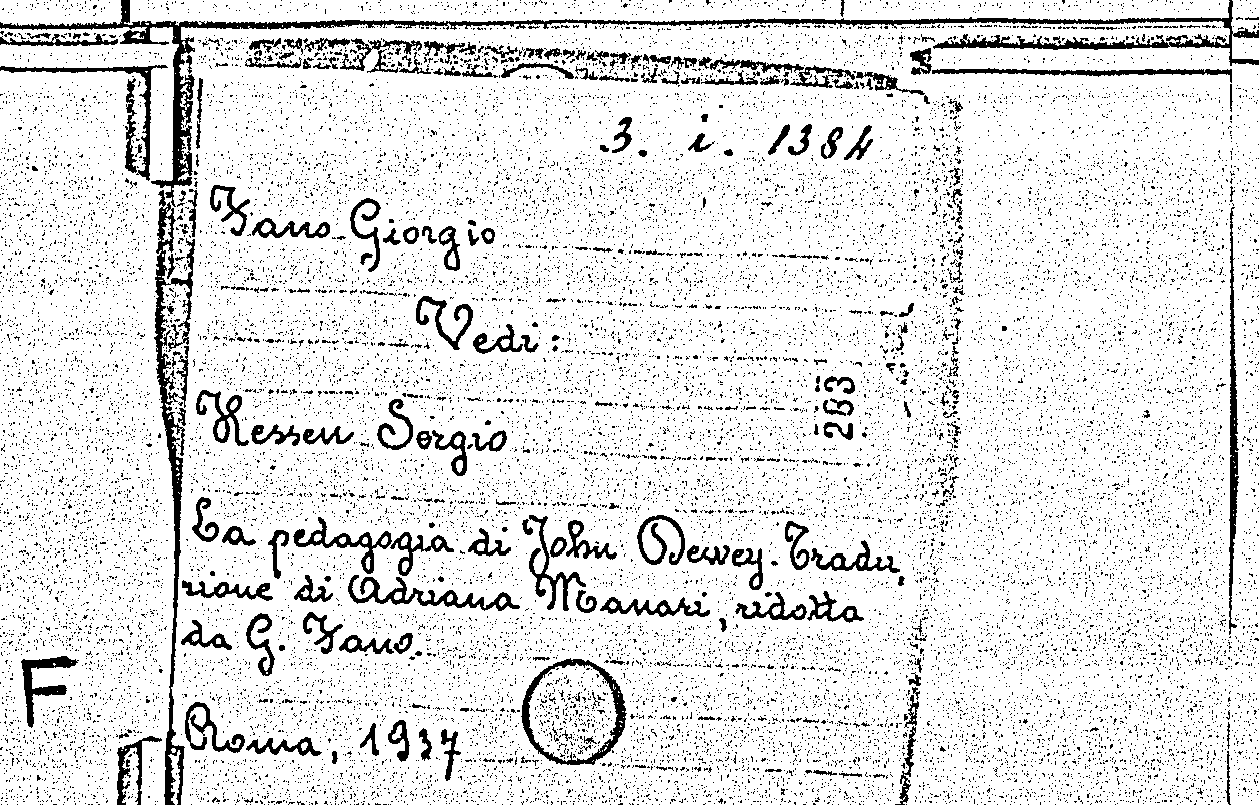 3. i. 1384
Fano Giorgio
Vedi:
Hessen Sergio
283
La pedagogia di John Dewey. Tradu,
zione di Adriana Manari, ridotta
da G. Fano.
F
Roma, 1937